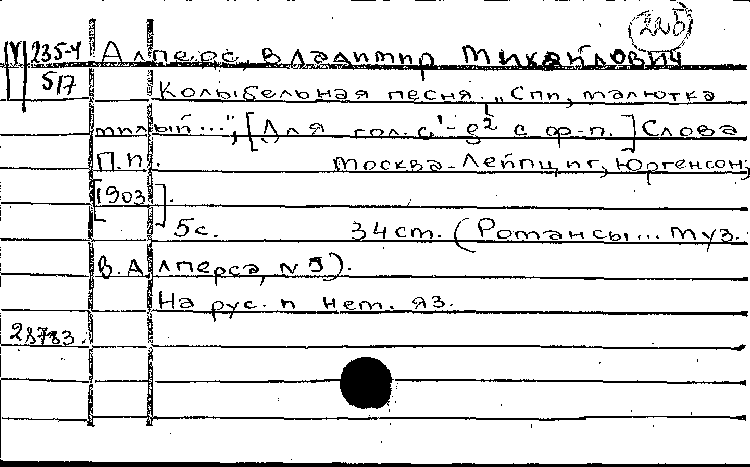 225
М 235-4 Алперс, Владимир Михайлович
517 Колыбельная песня. "Спи, малютка
милый...", [Для гол. c¹-g² с ф-п.] Слова
П.п. Москва-Лейпциг, Юргенсон,
[1903].
5с. 34см. (Романсы... муз.
В. Алперса, N 5).
На рус. и нем. яз.
28783.